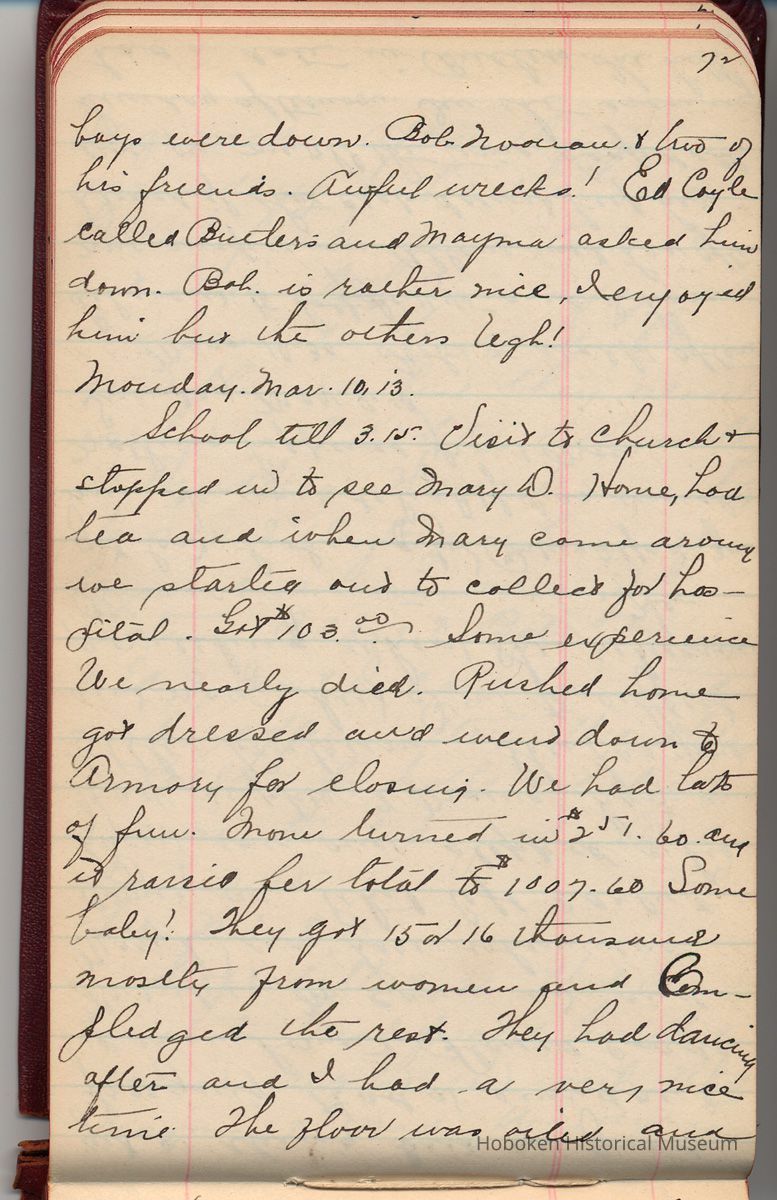 72
boys were down. Bob Noonan. & two of
his friends. Awful wrecks! Ed Coyle
called Butlers and Mayma asked him
down. Bob. is rather nice, I enjoyed
him but the others Ugh!
Monday. Mar. 10, 13.
School till 3.15. Visit to church &
stopped in to see Mary D. Home, had
tea and when Mary came around
we started out to collect for hos-
pital. Got $103.00 Some experience
We nearly died. Rushed home
got dressed and went down to
Armory for closing. We had lots
of fun. Mone turned in $251.60. and
it raised her total to $1007.60 Some
baby! They got 15 or 16 thousand
mostly from women and Com-
pledged the rest. They had dancing
after and I had a very nice
time. The floor was oiled and
Hoboken Historical Museum